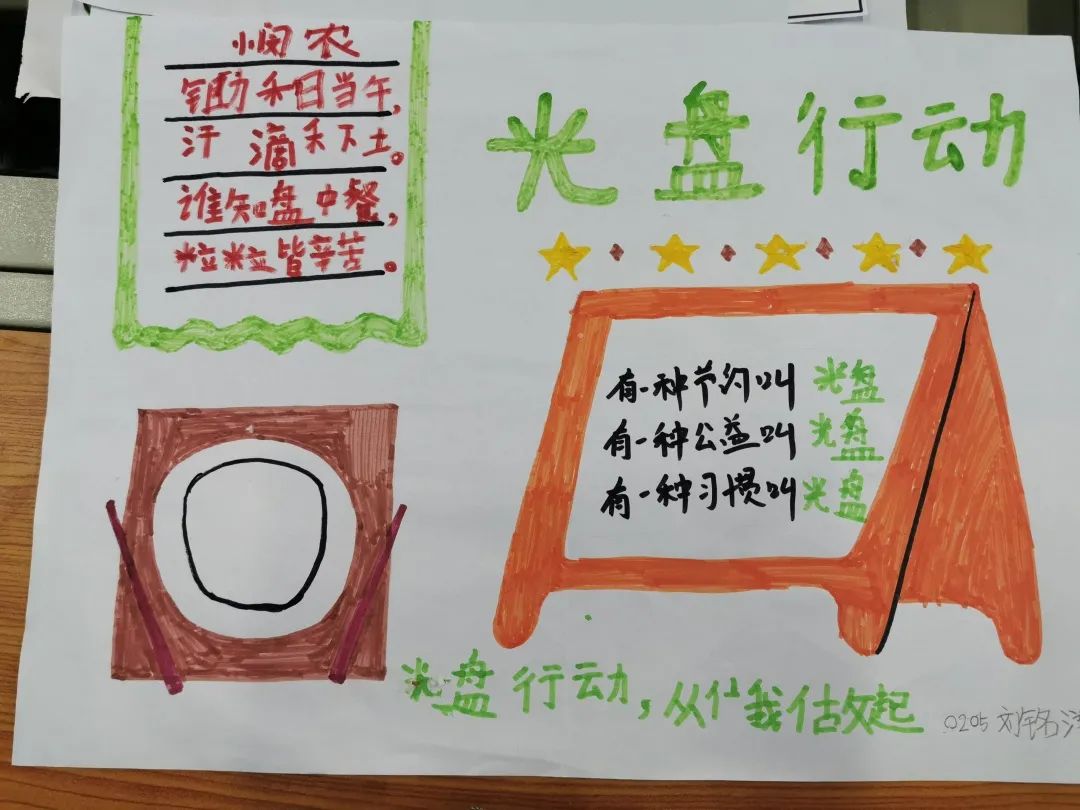 悯农
锄禾日当午，
汗滴禾下土。
谁知盘中餐，
粒粒皆辛苦。
光盘行动
有一种节约叫光盘
有一种公益叫光盘
有一种习惯叫光盘
光盘行动，从你我做起
0205 刘铭